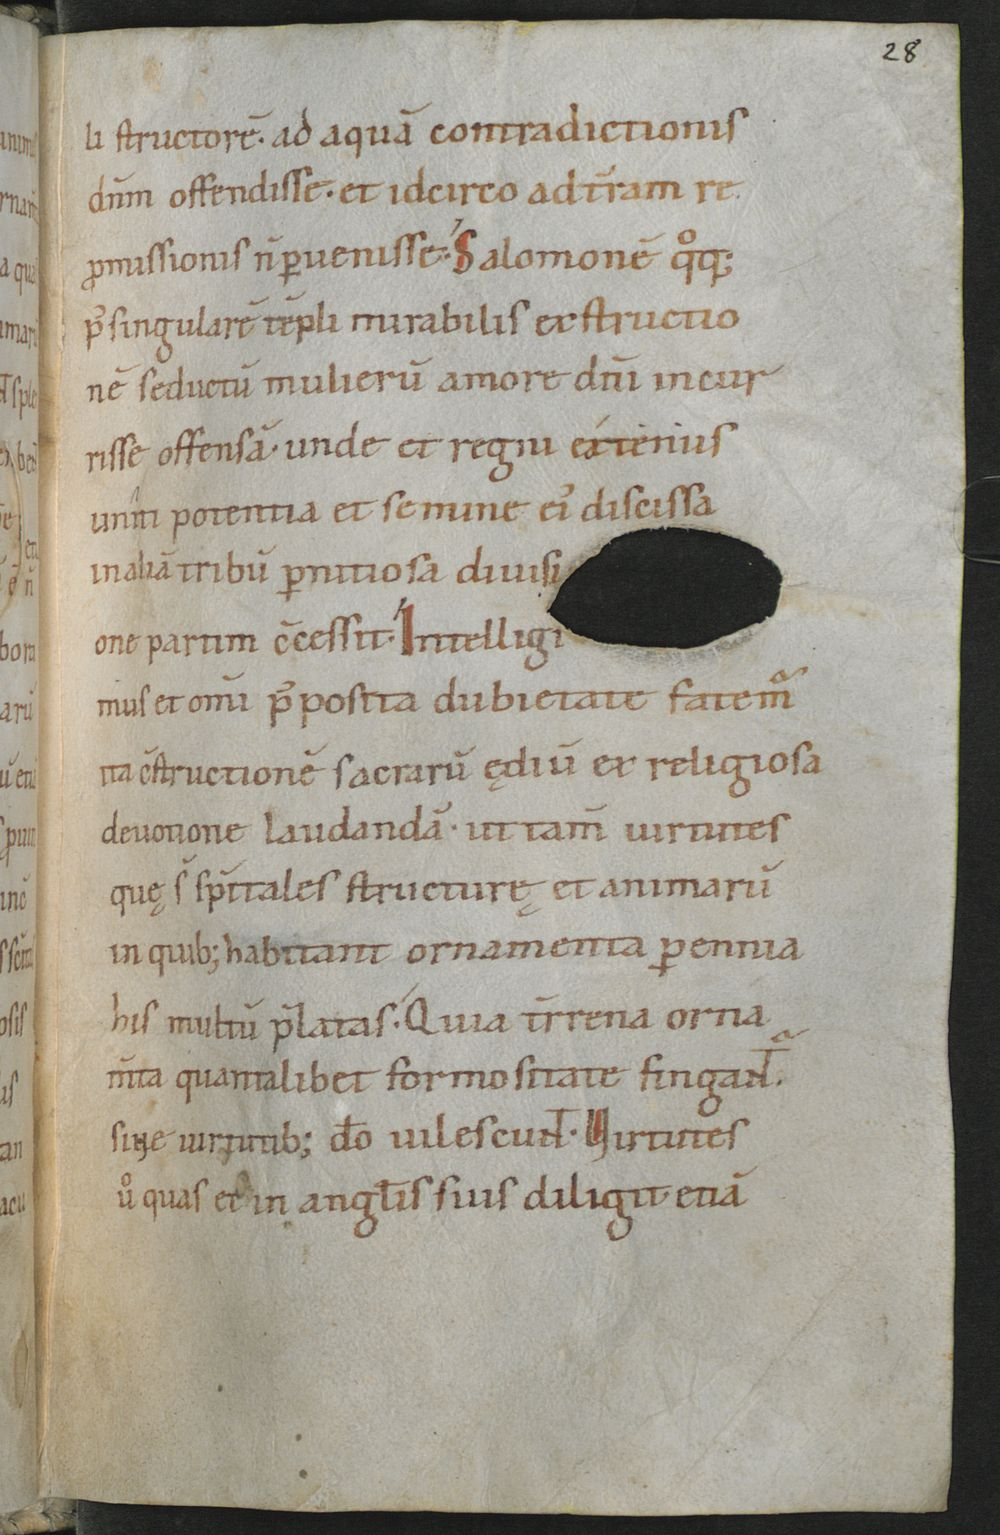 28
li structorē. ad aquā contradictionis
dn̄m offendisse. et idcirco ad tr̄am re
p̱missionis n̄ ꝑuenisse. Salomonē qͦq;
p̄ singularē tēpli mirabilis exstructio
nē seductū mulierū amore dn̄i incur
risse offensā. unde et regni exterius
potentia et semine eiꝰ discissa
in aliā tribū ꝑnitiosa diuisi
one partim c̄cessit. Intelligi
mus et om̄i p̄posita dubietate fatem̄
ita c̄structionē sacrarū ędiū ex religiosa
deuotione laudandā. ut tam̄ uirtutes
quę s̄ sp̄itales structurę et animarū
in quib; habitant ornamenta ꝑennia
his multū p̄latas. Quia tr̄rena orna
m̄ta quantalibet formositate fingant̄.
sine uirtutib; do̅ uilescunt. Uirtutes
uͦ quas et in angl̄is suis diligit etiā